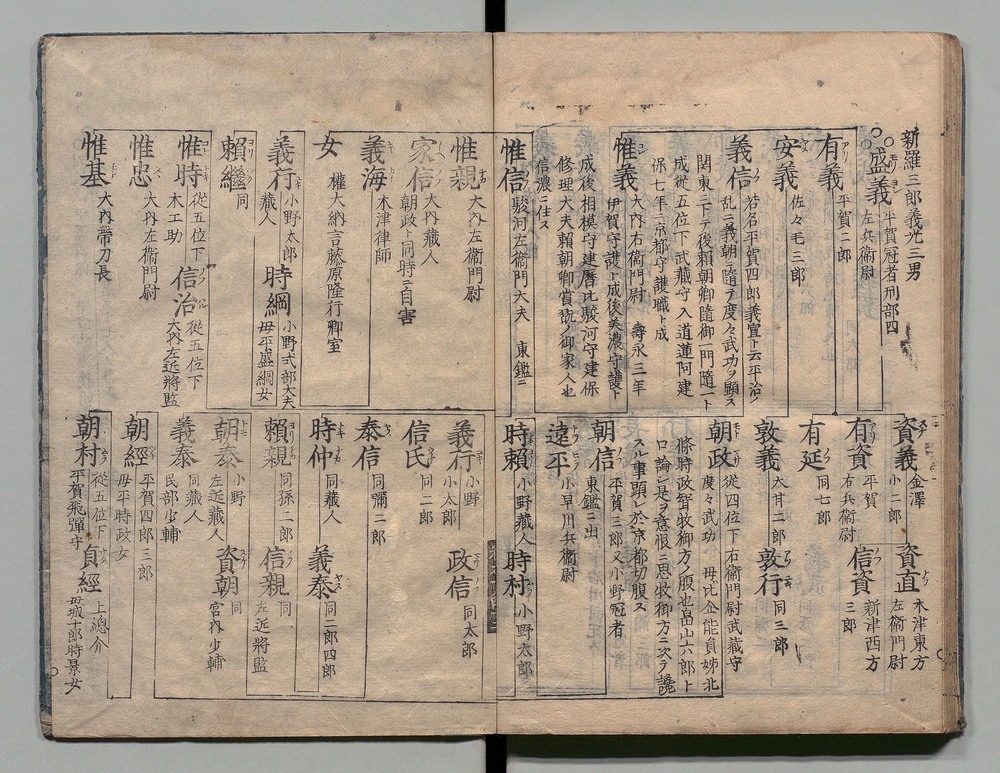 新羅三郎義光三男
盛義 平賀冠者刑部四
左兵衞尉
有義 平賀二郎
安義 佐々毛三郎
義信 若名平賀四郎義宣ト云平治ノ
乱ニ義朝ニ随テ度々武功ヲ顕ス
関東ニ下テ後頼朝卿随御一門随一ト
成從五位下武藏守入道蓮阿建
保七年ニ京都守護職ト成
惟義 大内右衞門尉 壽永三年
伊賀守護ト成後美濃守護ト
成後相模守建暦比駿河守建保
修理大夫賴朝卿賞翫ノ御家人也
惟信 駿河左衞門大夫 東鑑ニ
信濃ニ住ス
惟親 大内左衞門尉
家信 大内藏人
朝政ト同時ニ自害
義海 木津律師
女 權大納言藤原隆行卿室
義行 小野太郎
藏人
時綱 小野式部大夫
母平盛綱女
賴繼 同
惟時 從五位下
木工助
信治 從五位下
大内左近將監
惟忠 大内左衞門尉
惟基 大内帶刀長
資義 金澤
小二郎
資直 木津東方
左衞門尉
有資 平賀
右兵衞尉
信資 新津西方
三郎
有延 同七郎
敦義 大甘二郎
敦行 同三郎
朝政 從四位下右衞門尉武藏守
度々武功 母ハ比企能員姊北
條時政智牧御方ノ腹也畠山六郎ト
口論シ是ヲ意恨ニ思牧御方ニ次テ讒
スル事顕レ於京都切腹ス
朝信 平賀三郎又小野冠者
東鑑ニ出
遠平 小早川兵衞尉
時賴 小野藏人
時村 小野太郎
義行 小野
小太郎
政信 同太郎
信氏 同二郎
泰信 同彌二郎
時仲 同藏人
義泰 同二郎四郎
賴親 同孫二郎
信親 同
左近將監
朝泰 小野
左近藏人
資朝 同
宮内少輔
義泰 同藏人
民部少輔
朝經 平賀四郎三郎
母平時政女
朝村 從五位下
平賀飛彈守
貞經 上總介
母城十郎時景女